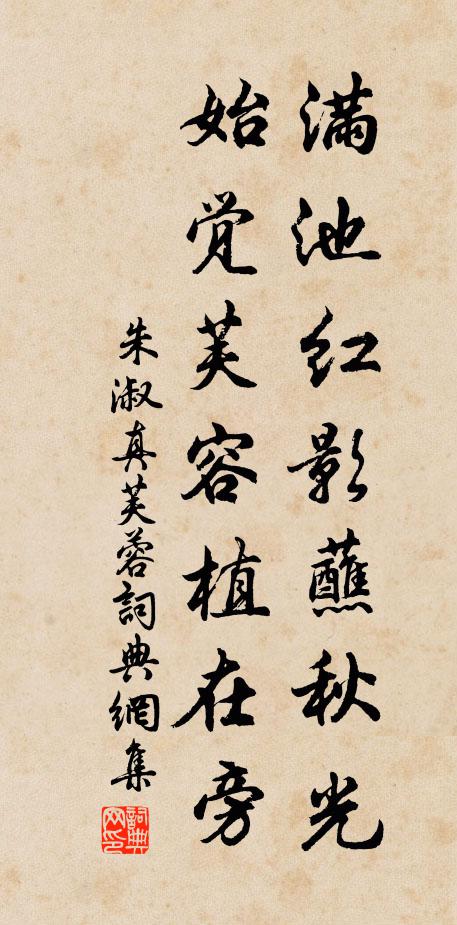 满池红影蘸秋光
始觉芙容植在旁
朱淑真芙蓉詞典網集
詞典网印